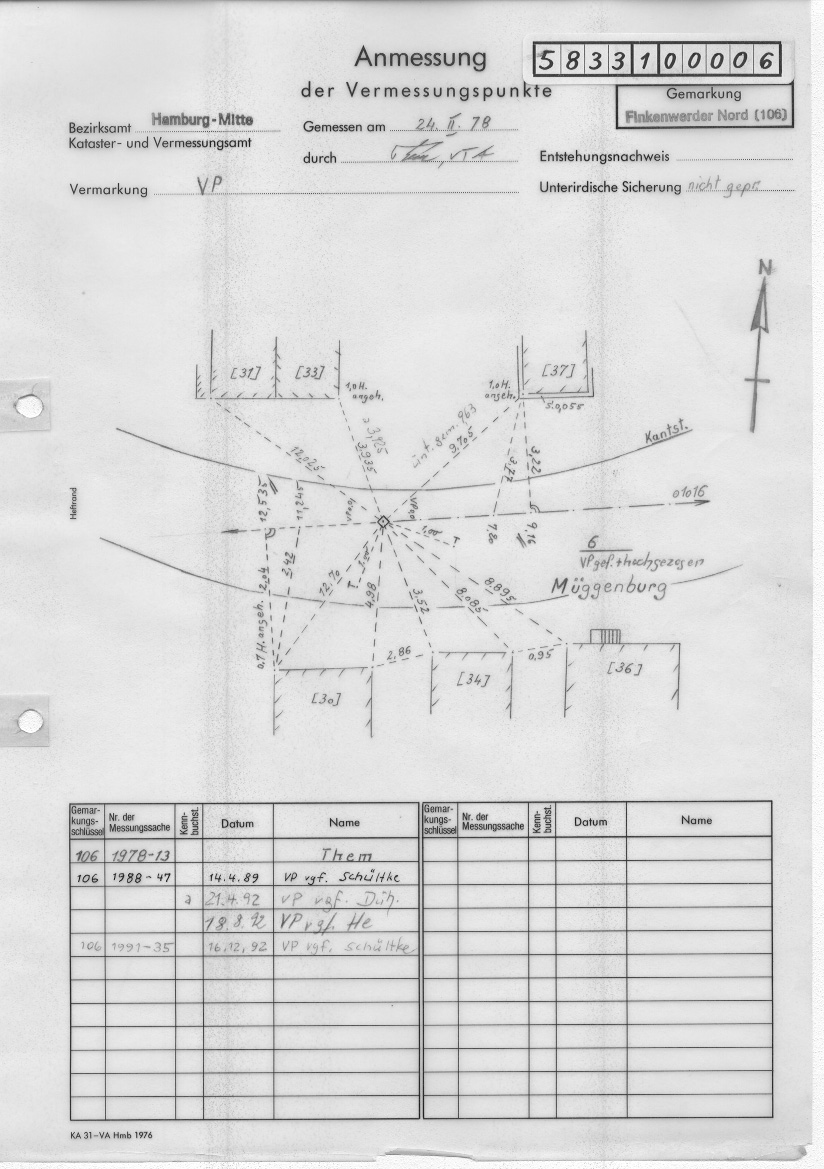 Anmessung
der Vermessungspunkte
5 8 3 3 1 0 0 0 0 6
Gemarkung
Finkenwerder Nord (106)
Bezirksamt Hamburg-Mitte
Kataster- und Vermessungsamt
Gemessen am 24. II. 78
durch
Entstehungsnachweis
Vermarkung VP
Unterirdische Sicherung nicht gepr.
N
[31]
[33]
[37]
1,0 H. angeh.
1,0 H. angeh.
S.0,055
Kantst.
12,025
a 3,925
3,935
unt. Gem. 963
9,705
3,77
3,22
Heftrand
12,535
11,245
01016
1,00
7,80
9,16
6
VP gef. + hochgezogen
Müggenburg
2,04
2,42
12,70
4,98
3,52
8,085
8,895
0,7 H. angeh.
2,86
0,95
[30]
[34]
[36]
Gemar-kungs-schlüssel Nr. der Messungssache Kenn-buchst. Datum Name
Gemar-kungs-schlüssel Nr. der Messungssache Kenn-buchst. Datum Name
106 1978-13 Them
106 1988-47 14.4.89 VP vgf. Schültke
a 21.4.92 VP vgf. Düh.
18.8.92 VP vgf. He
106 1991-35 16.12.92 VP vgf. Schültke
KA 31–VA Hmb 1976